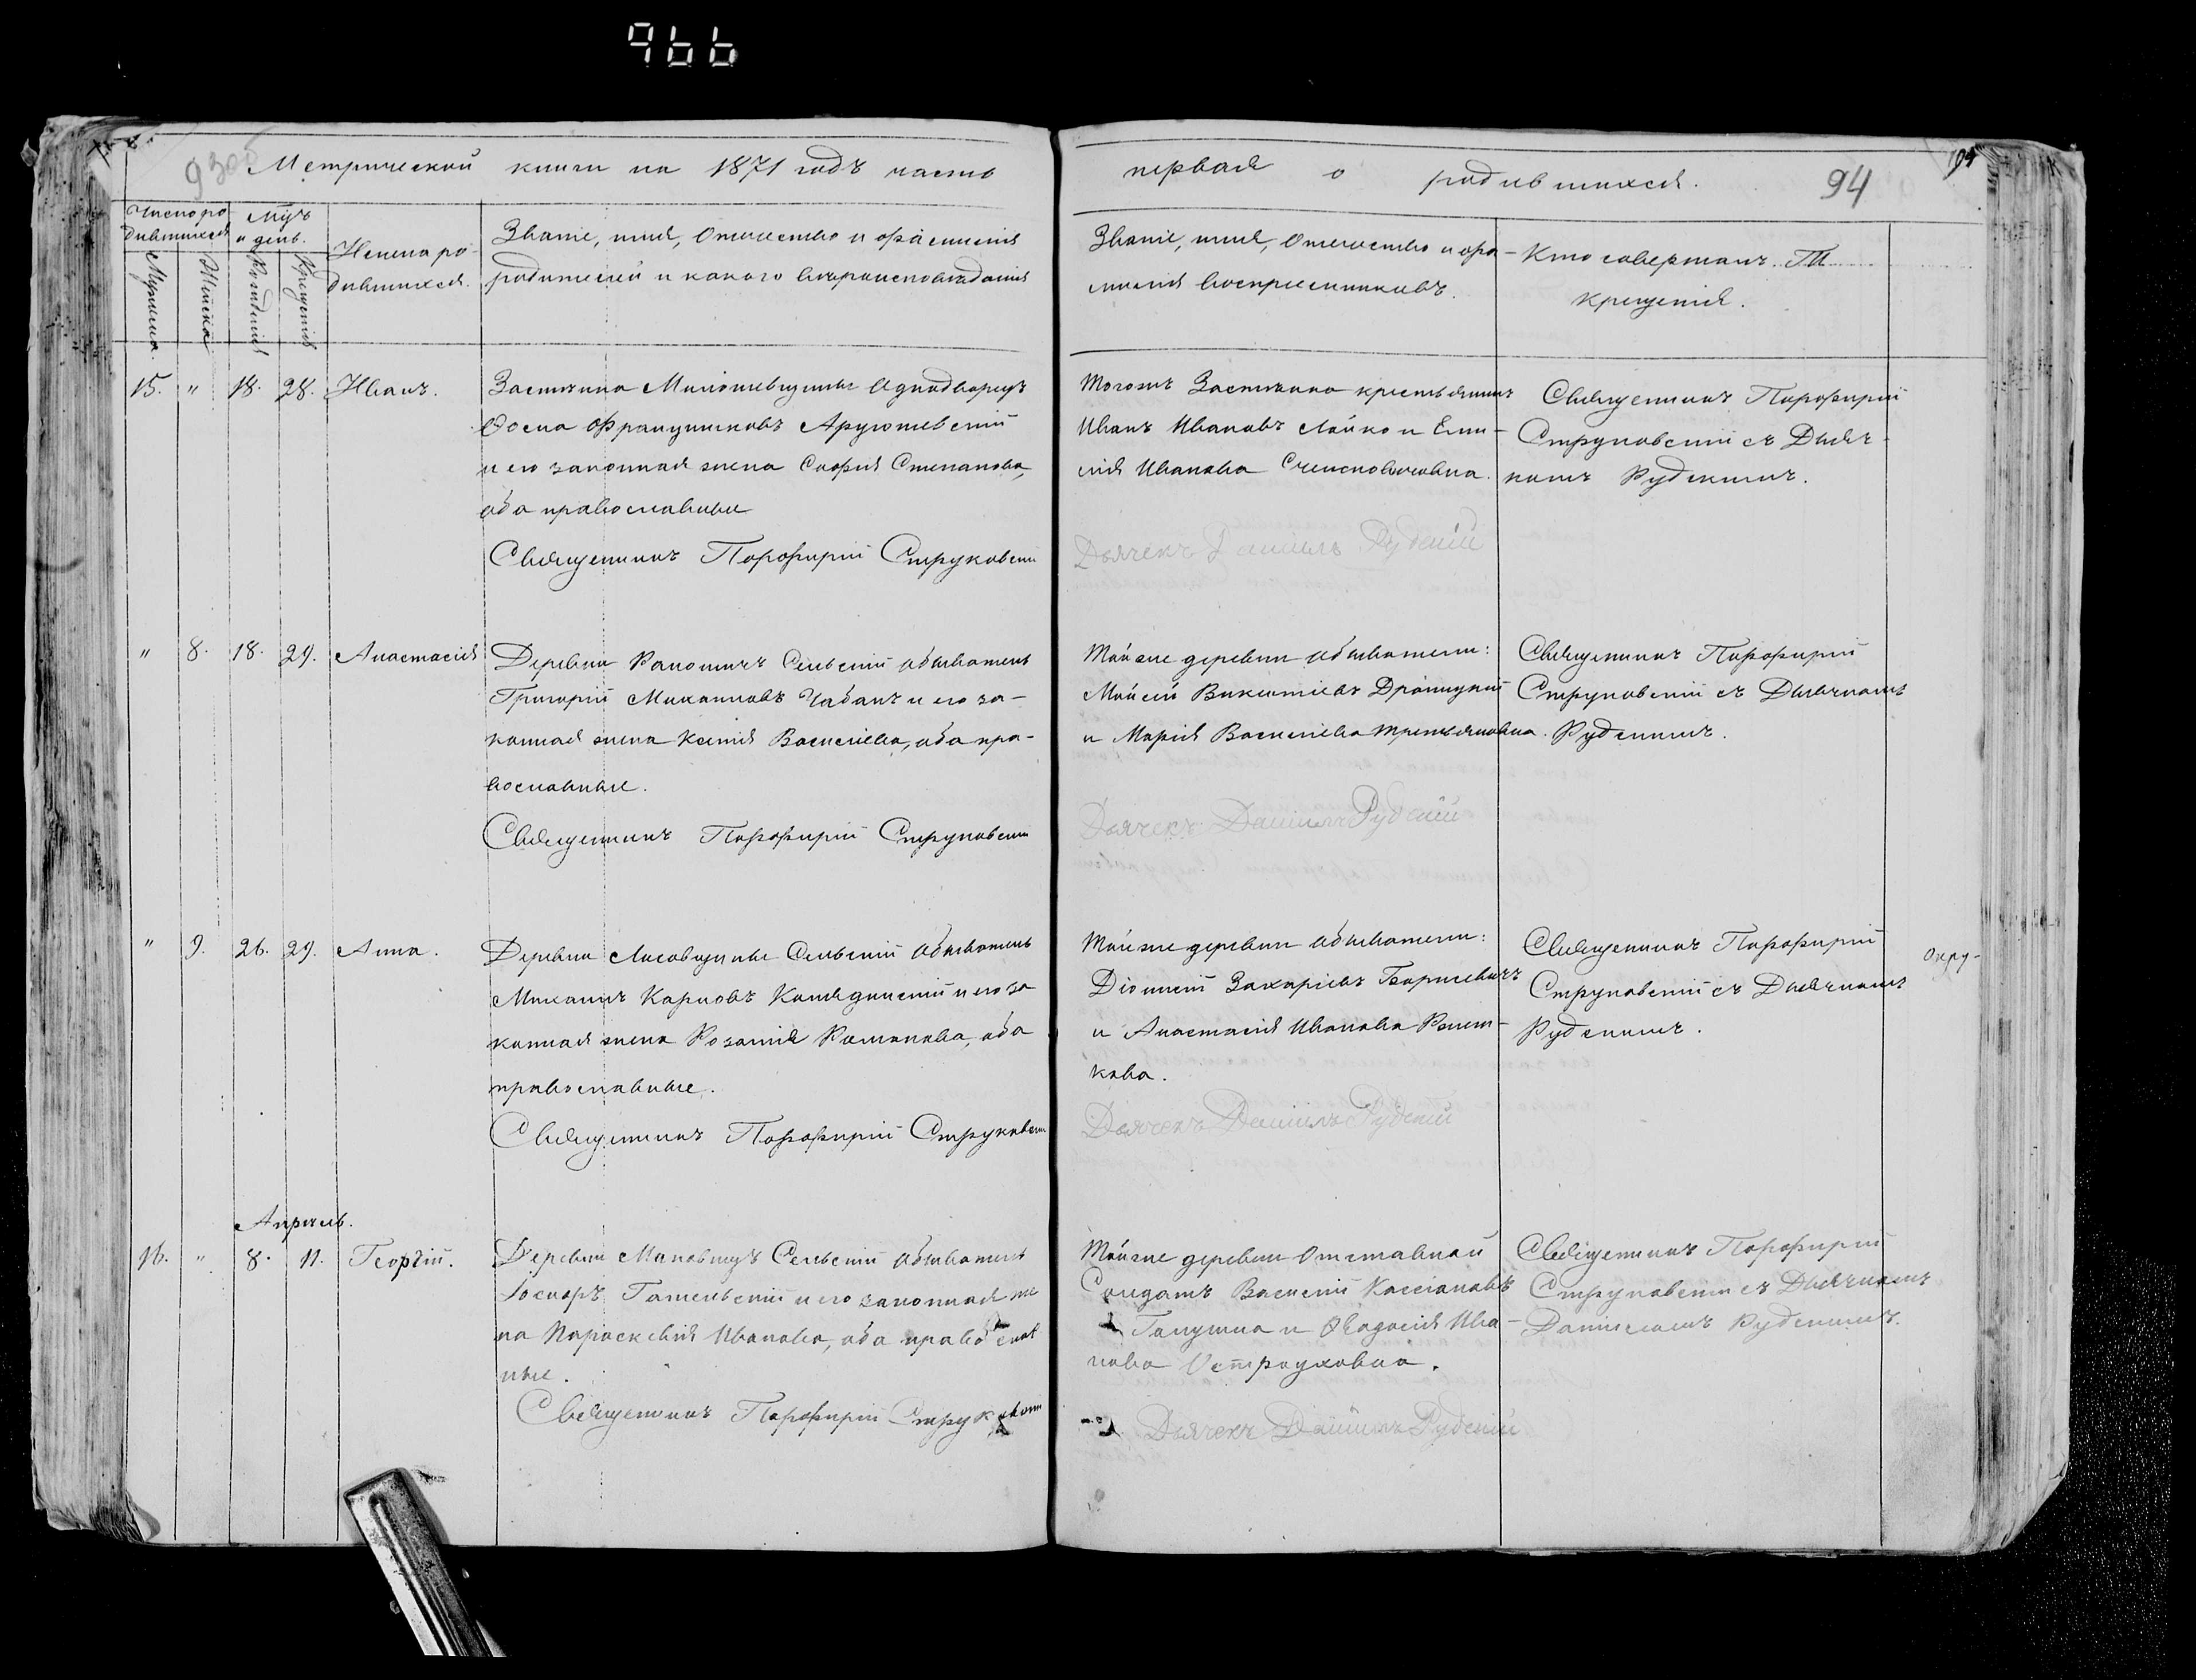 966
93об
Метрической книги на 1871 годъ часть
первая о родившихся.
94
Число ро-
дившихся
Мѣс.
и день.
Мужеска.
Женска
Рожденія
Крещенія
Имена ро-
дившихся.
Званіе, имя, Отчество и фамилія
родителей и какого вѣроисповѣданія
Званіе, имя, Отчество и фа-
милія воспріемниковъ.
Кто совершалъ Т
крещенія.
15. " 18. 28. Иванъ.
Застѣнка Однодворецъ
Францишковъ
и его законная жена Софія Степанова,
оба православные
Священникъ Порфирій Струковскій
Тогожъ Застѣнка крестьянинъ
Иванъ Ивановъ Лойко и Еми-
лія Иванова
Дьячекъ Даніилъ Рудскій
Священникъ Порфирій
Струковскій съ Дьяч-
комъ Рудскимъ.
" 8. 18. 29. Анастасія
Деревни Сельскій обыватель
Григорій Михаиловъ Чабанъ и его за-
конная жена Ксенія Василіева, оба пра-
вославные.
Священникъ Порфирій Струковскій
Той же деревни обыватели:
Мойсей Викентіевъ
и Марія Василіева Третьяковна.
Дьячекъ Даніилъ Рудскій
Священникъ Порфирій
Струковскій съ Дьячкомъ
Рудскимъ.
" 9. 26. 29. Анна.
Деревни Сельскій обыватель
Михаилъ Карповъ и его за
конная жена Розалія Романова, оба
православные.
Священникъ Порфирій Струковскій
Той же деревни обыватели:
Діонисій Захаріевъ Борисевичъ
и Анастасія Иванова
кова.
Дьячекъ Даніилъ Рудскій
Священникъ Порфирій
Струковскій съ Дьячкомъ
Рудскимъ.
Апрѣль.
16. " 8. 11. Георгій.
Деревни Сельскій обыватель
Іосифъ и его законная же
на Параскевія Иванова, оба православ
ные.
Священникъ Порфирій Струковскій
Той же деревни Отставной
Солдатъ Василій Кассіановъ
и Ѳеодосія Ива-
нова
Дьячекъ Даніилъ Рудскій
Священникъ Порфирій
Струковскій съ Дьячкомъ
Даніиломъ Рудскимъ.